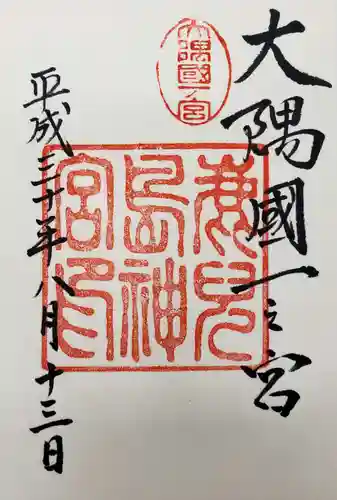 大隅國一之宮
大隅國一ノ宮
鹿兒島神宮印
平成三十年八月十三日